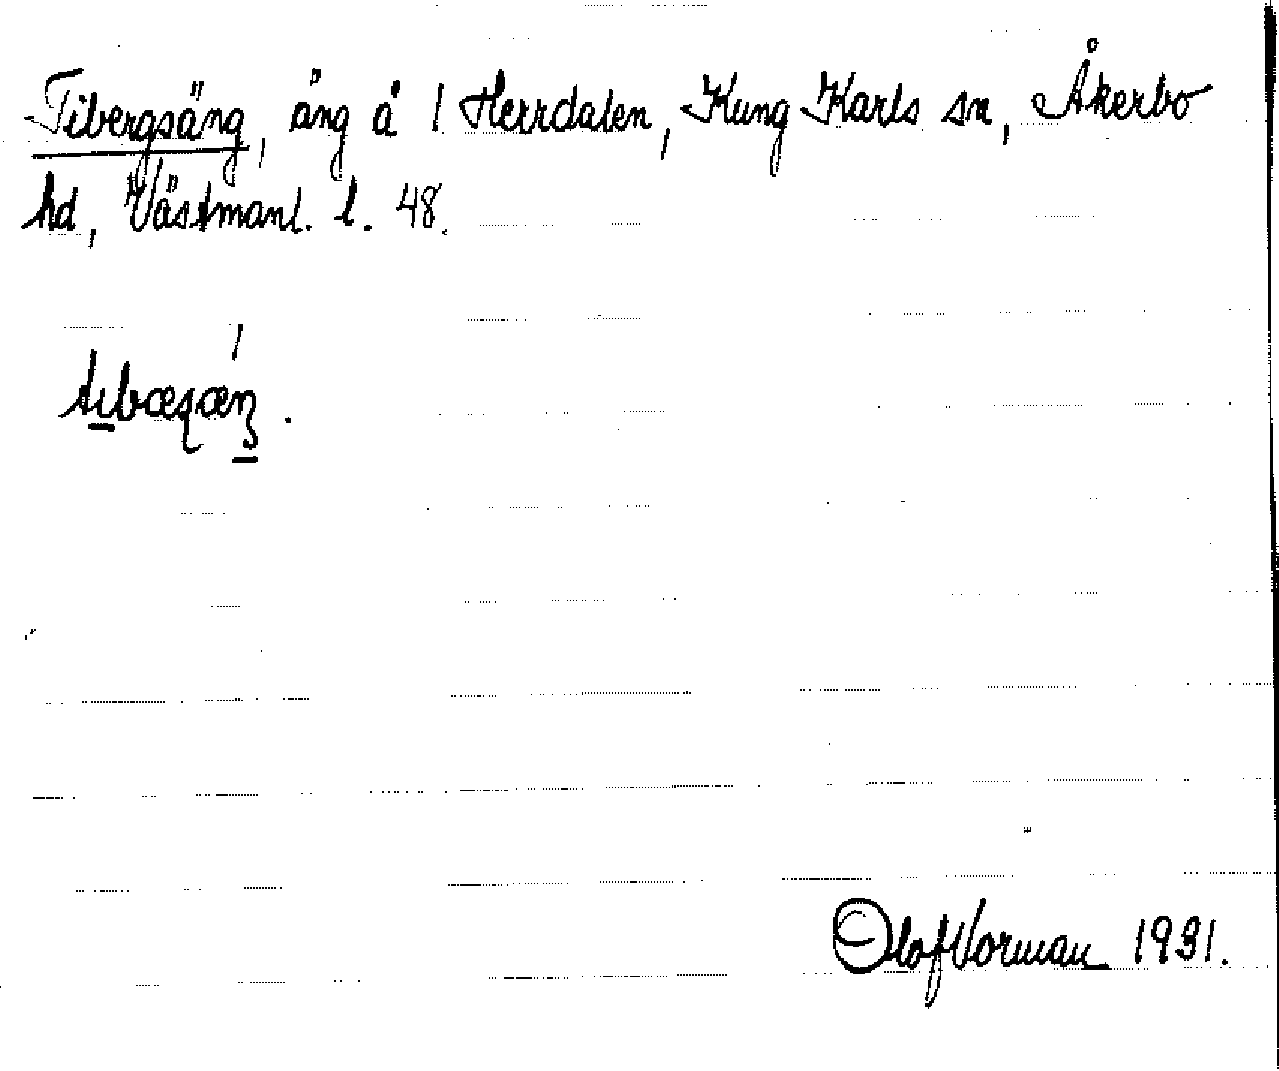 Tibergsäng, äng å 1 Herrdalen, Kung Karls sn, Åkerbo
hd, Västmanl. l. 48.
Olof Vorman 1931.